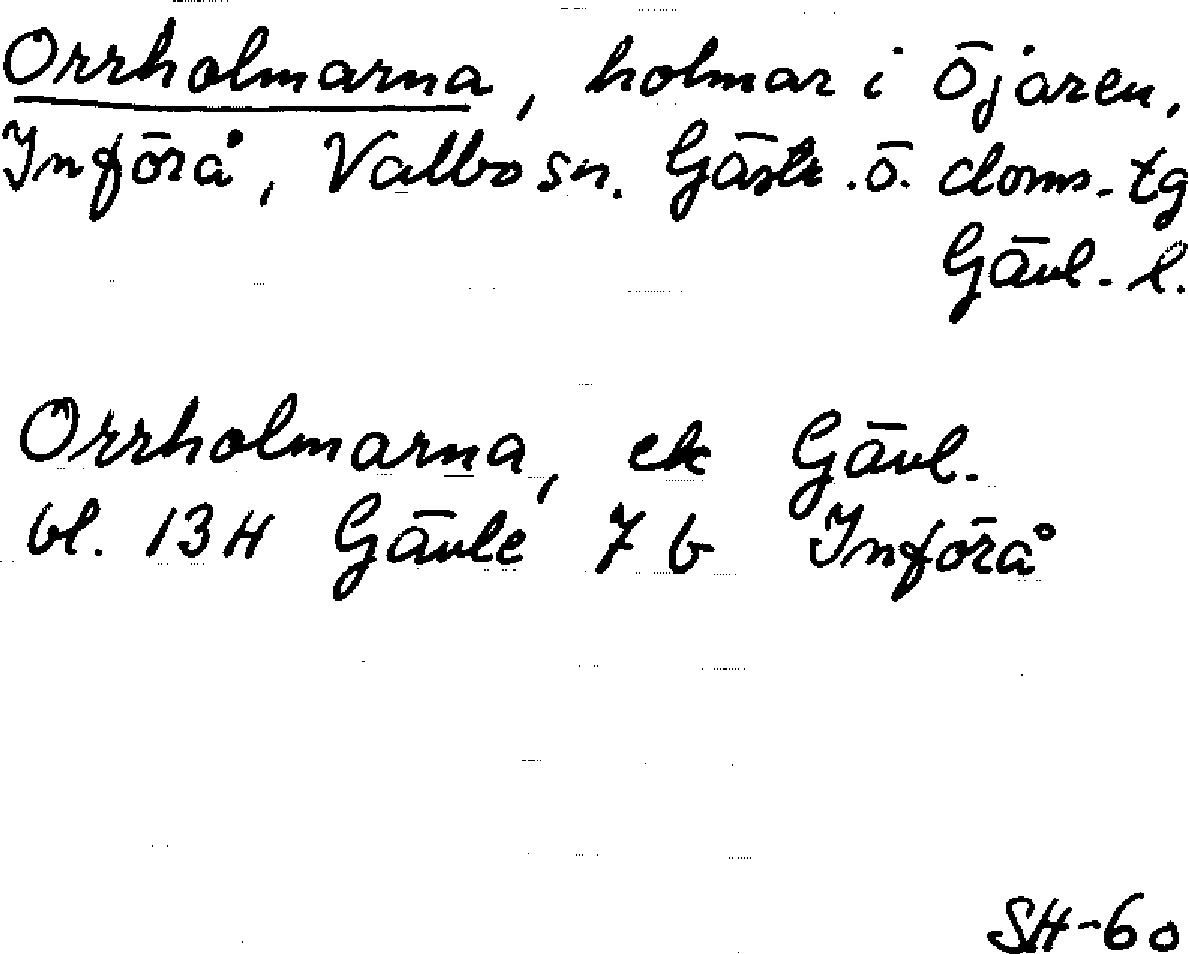 Orrholmarna, holmar i Öjaren,
Införå, Valbo sn. Gästr. ö. doms.-tg
Gävl. l.
Orrholmarna, ek Gävl.
bl. 13H Gävle 7 b Införå
SH-60